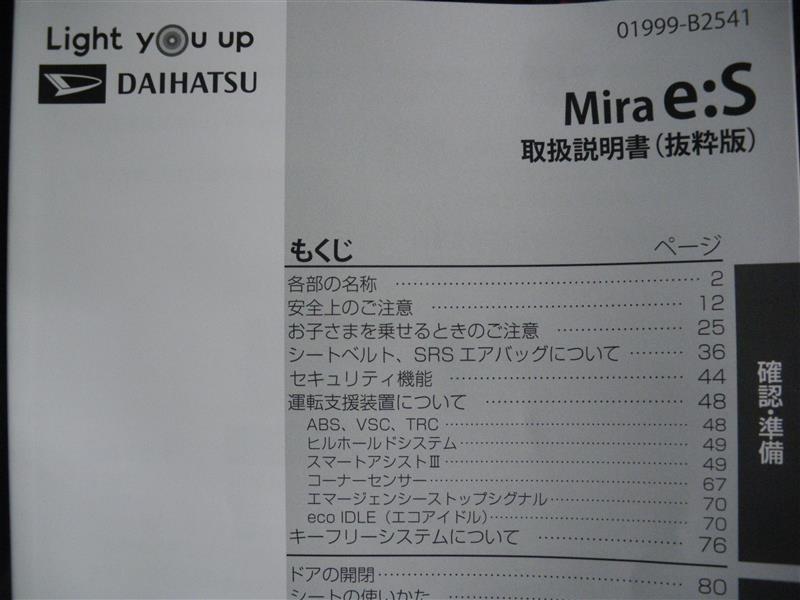 Light you up
DAIHATSU
01999-B2541
Mira e:S
取扱説明書(抜粋版)
もくじ ページ
各部の名称 2
安全上のご注意 12
お子さまを乗せるときのご注意 25
シートベルト、SRSエアバッグについて 36
セキュリティ機能 44
運転支援装置について 48
ABS、VSC、TRC 48
ヒルホールドシステム 49
スマートアシストⅢ 49
コーナーセンサー 67
エマージェンシーストップシグナル 70
eco IDLE(エコアイドル) 70
キーフリーシステムについて 76
ドアの開閉 80
シートの使いかた
確認・準備